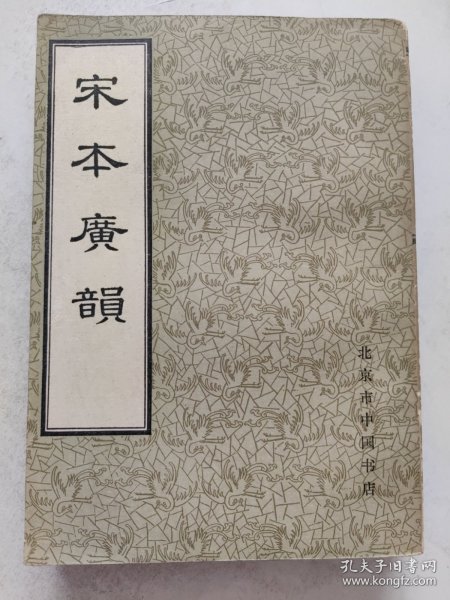 宋本廣韻
北京市中国书店
孔夫子旧书网
www.kongfz.com